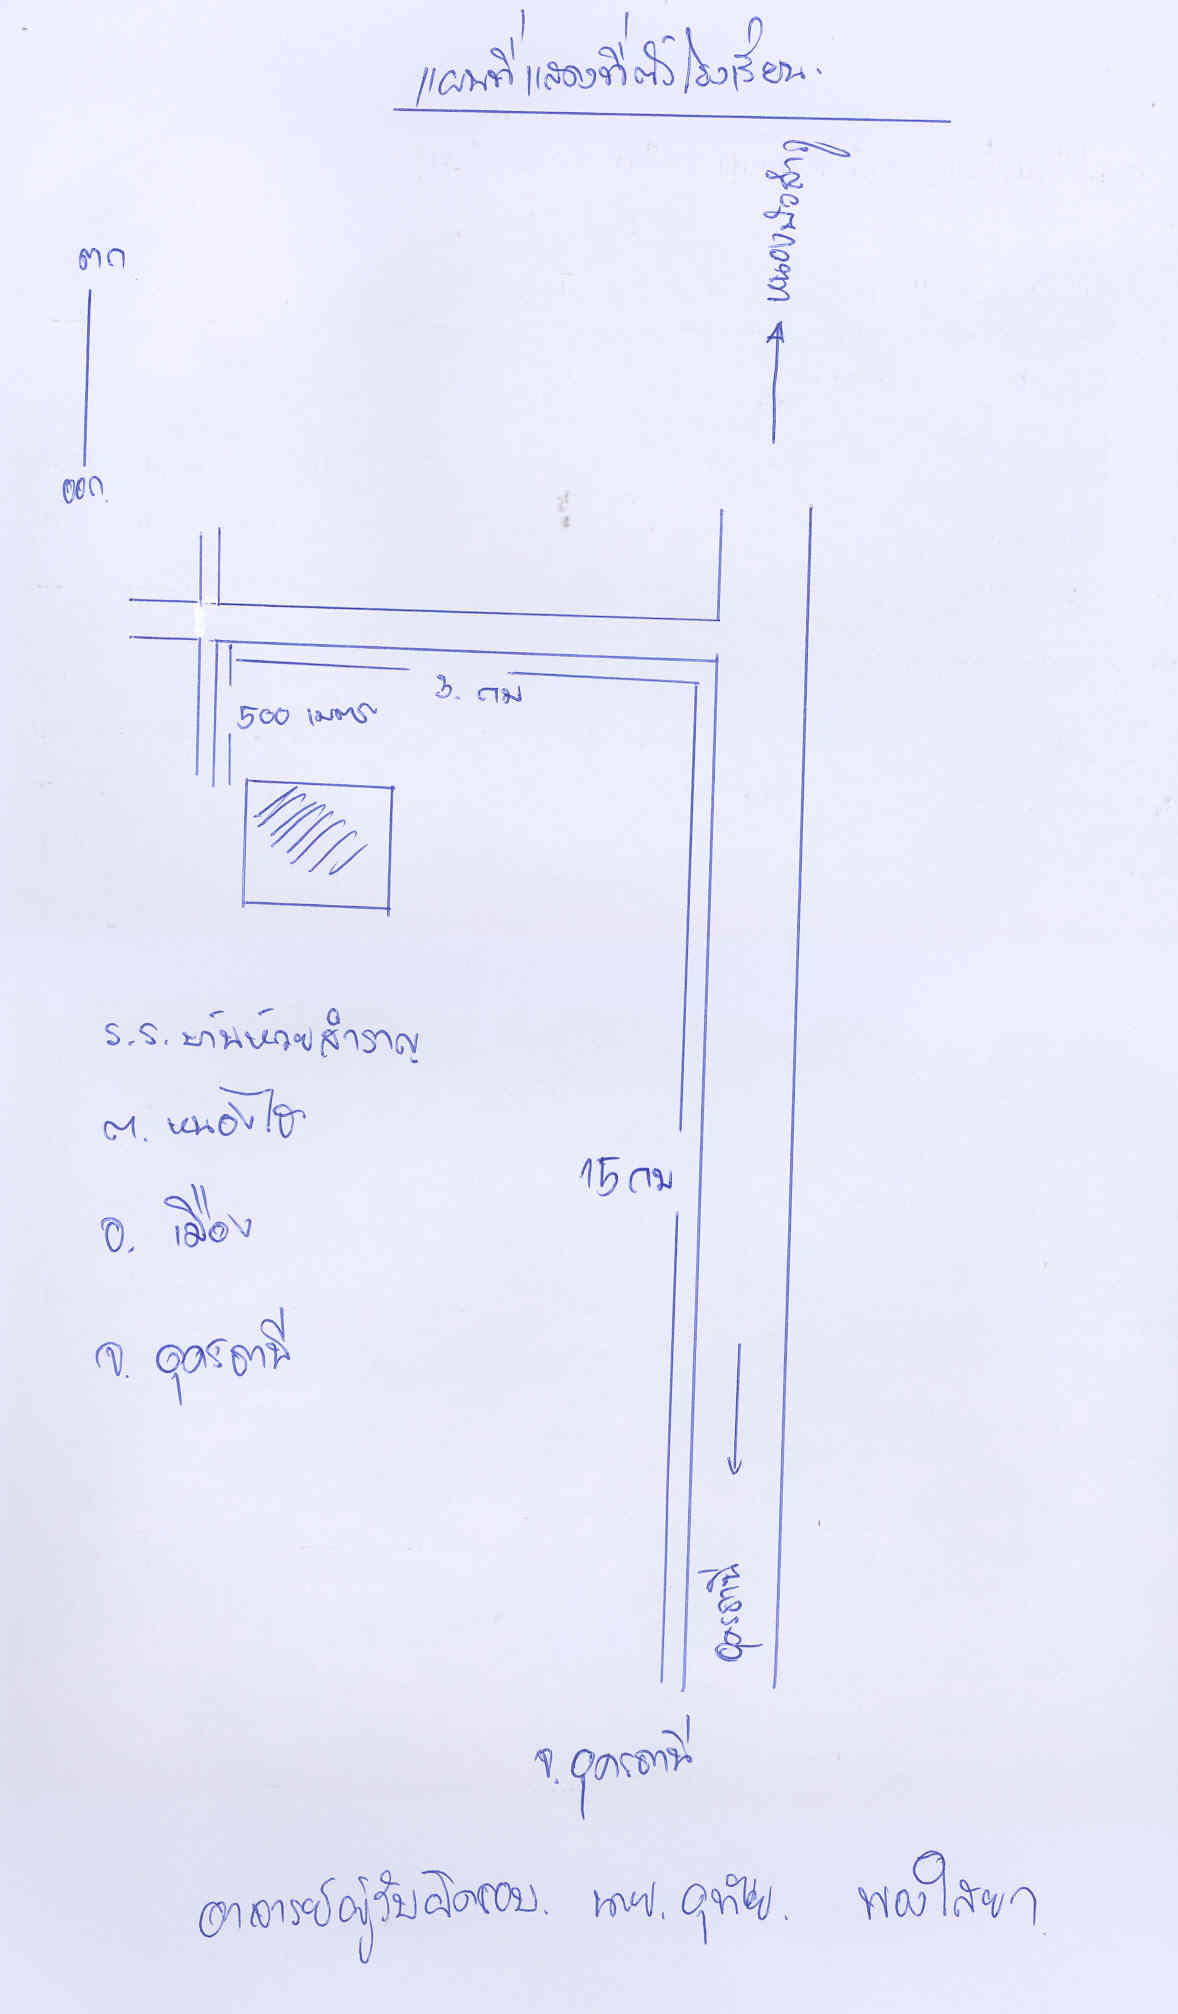 แผนที่แสดงที่ตั้งโรงเรียน.
หนองบัวลำภู
ตก
ออก
3. กม
500 เมตร
ร.ร. บ้านห้วยสำราญ
ต. หนองไฮ
15 กม
อ. เมือง
จ. อุดรธานี
อุดรธานี
จ. อุดรธานี
อาจารย์ผู้รับผิดชอบ. นาย. อุทัย. พองใสยา